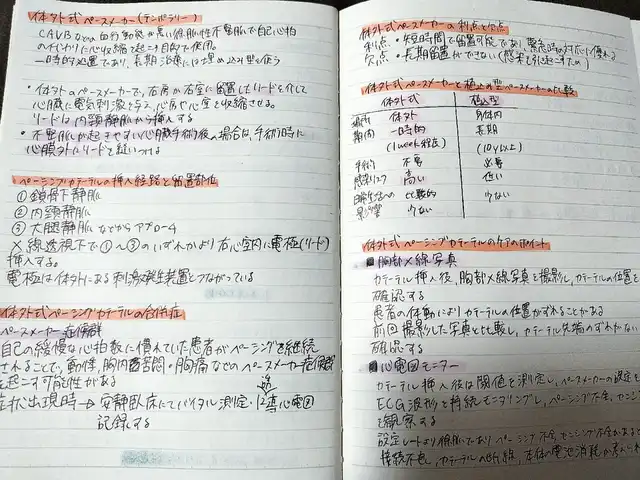 体外式ペースメーカー(テンポラリー)
CAVBなどの血行動態が悪い徐脈性不整脈で自己心拍
のかわりに心収縮を起こす目的で使用。
一時的処置であり、長期治療には埋め込み型を使う
・体外のペースメーカーで、右房か右室に留置したリードを介して
心臓に電気刺激を与え、心房や心室を収縮させる。
リードは内頸静脈から挿入する
・不整脈が起きやすい心臓手術後の場合は、手術時に
心膜外にリードを縫いつける
ペーシングカテーテルの挿入経路と留置部位
①鎖骨下静脈
②内頸静脈
③大腿静脈などからアプローチ
X線透視下で①〜③のいずれかより右心室内に電極(リード)
挿入する。
電極は体外にある刺激発生装置とつながっている
体外式ペーシングカテーテルの合併症
ペースメーカー症候群
自己の緩慢な心拍数に慣れていた患者がペーシングを継続
されることで、動悸、胸内苦悶・胸痛などのペースメーカー症候群
を起こす可能性がある
症状出現時→安静臥床にてバイタル測定・12誘導心電図
記録する
体外式ペースメーカーの利点と欠点
利点・短時間で留置可能であり緊急時の対応に優れる
欠点・長期留置ができない(感染を引き起こすため)
体外式ペースメーカーと植込み型ペースメーカーの比較
体外式 植込型
場所 体外 身体内
期間 一時的 長期
(1week程度) (10y以上)
手術 不要 必要
感染リスク 高い 低い
日常生活への 比較的 少ない
影響 少ない
体外式ペーシングカテーテルのケアのポイント
胸部X線写真
カテーテル挿入後、胸部X線写真を撮影し、カテーテルの位置を
確認する
患者の体動によりカテーテルの位置がずれることがある
前回撮影した写真と比較し、カテーテル先端のずれがない
確認する
心電図モニター
カテーテル挿入後は閾値を測定し、ペースメーカーの設定を
ECG波形を持続モニタリングし、ペーシング不全、センシング
を観察する
設定レートより徐脈であり ペーシング不全、センシング不全があると
接続不良、カテーテルの断線、本体の電池消耗が考えられ